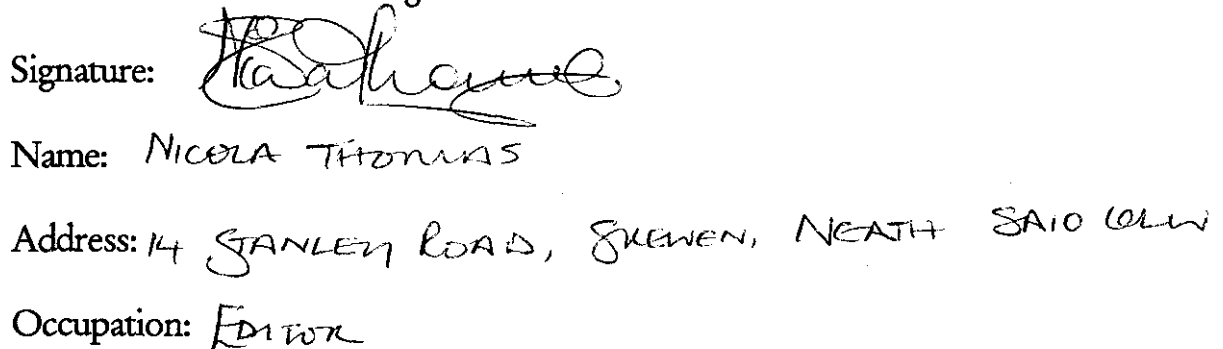 Signature:
Name: NICOLA THOMAS
Address: 14 STANLEY ROAD, SKEWEN, NEATH SA10
Occupation: EDITOR